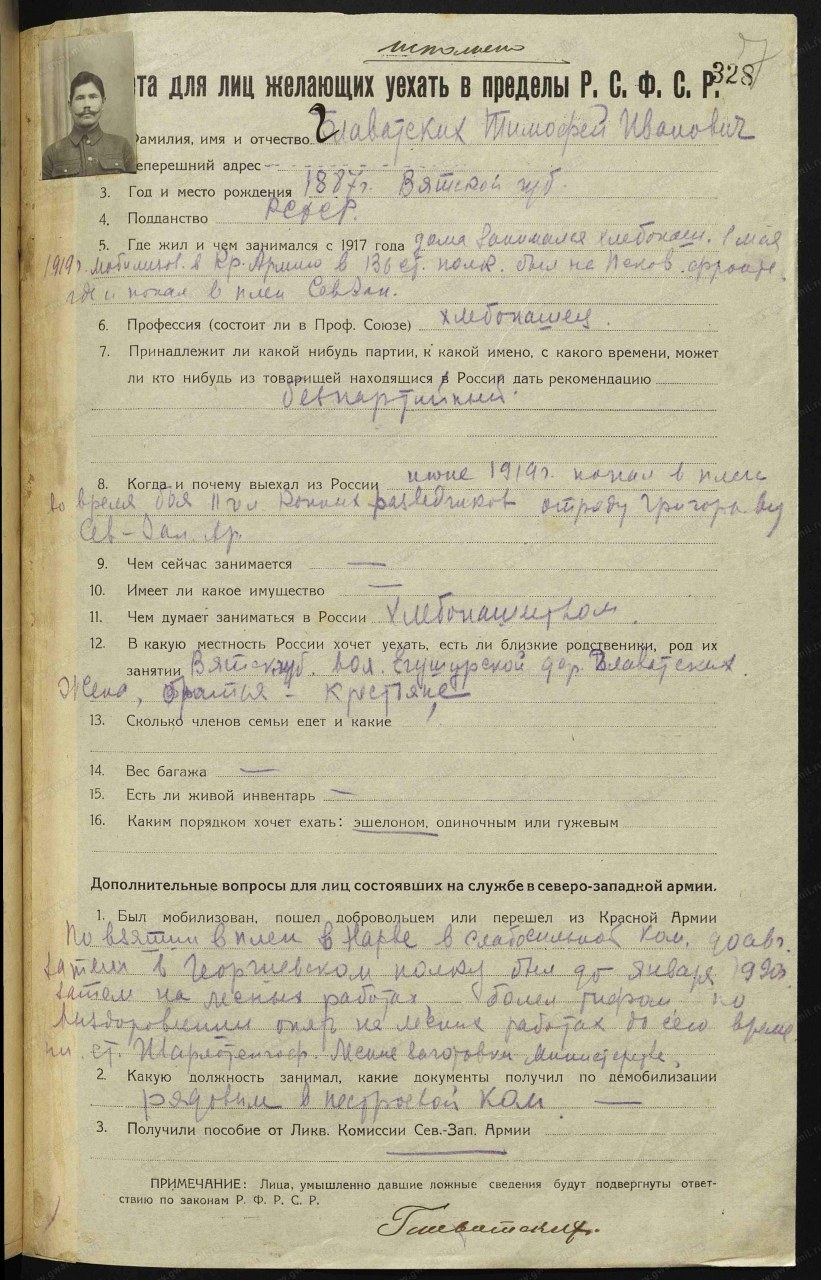 исполнено
328
ета для лиц желающих уехать в пределы Р. С. Ф. С. Р.
Фамилия, имя и отчество Главатских Тимофей Иванович
Теперешний адрес
3. Год и место рождения 1887г. Вятской губ.
4. Подданство РСФСР.
5. Где жил и чем занимался с 1917 года дома занимался хлебопаш. 1 мая
1919г. мобилизов. в Кр. Армию в 136 ст. полк. был на Псков. фронте,
где и попал в плен Сев Зап.
6. Профессия (состоит ли в Проф. Союзе) хлебопашец.
7. Принадлежит ли какой нибудь партии, к какой имено, с какого времени, может
ли кто нибудь из товарищей находящися в России дать рекомендацию
безпартийный.
8. Когда и почему выехал из России июне 1919г. попал в плен
во время боя конных разведчиков отряду
Сев-Зап. Ар.
9. Чем сейчас занимается —
10. Имеет ли какое имущество —
11. Чем думает заниматься в России Хлебопашеством.
12. В какую местность России хочет уехать, есть ли близкие родственики, род их
занятии Вятск. губ. вол. Егушурской дер. Главатских.
Жена, братья – крестьяне
13. Сколько членов семьи едет и какие
14. Вес багажа —
15. Есть ли живой инвентарь —
16. Каким порядком хочет ехать: эшелоном, одиночным или гужевым
Дополнительные вопросы для лиц состоявших на службе в северо-западкой армии.
1. Был мобилизован, пошел добровольцем или перешел из Красной Армии
По взятии в плен в Нарве в слабосильной ком. до авг.
затем в Георгиевском полку был до января 1920г.
затем на лесных работах, болел тифом по
выздоровлении опять на лесных работах до сего време
ни. ст. Шарлотенгоф. Лесные заготовки Министерства.
2. Какую должность занимал, какие документы получил по демобилизации
рядовым в нестроевой ком. —
3. Получили пособие от Ликв. Комиссии Сев.-Зап. Армии
ПРИМЕЧАНИЕ: Лица, умышленно давшие ложные сведения будут подвергнуты ответ-
ствию по законам Р. Ф. Р. С. Р.
Главатских.